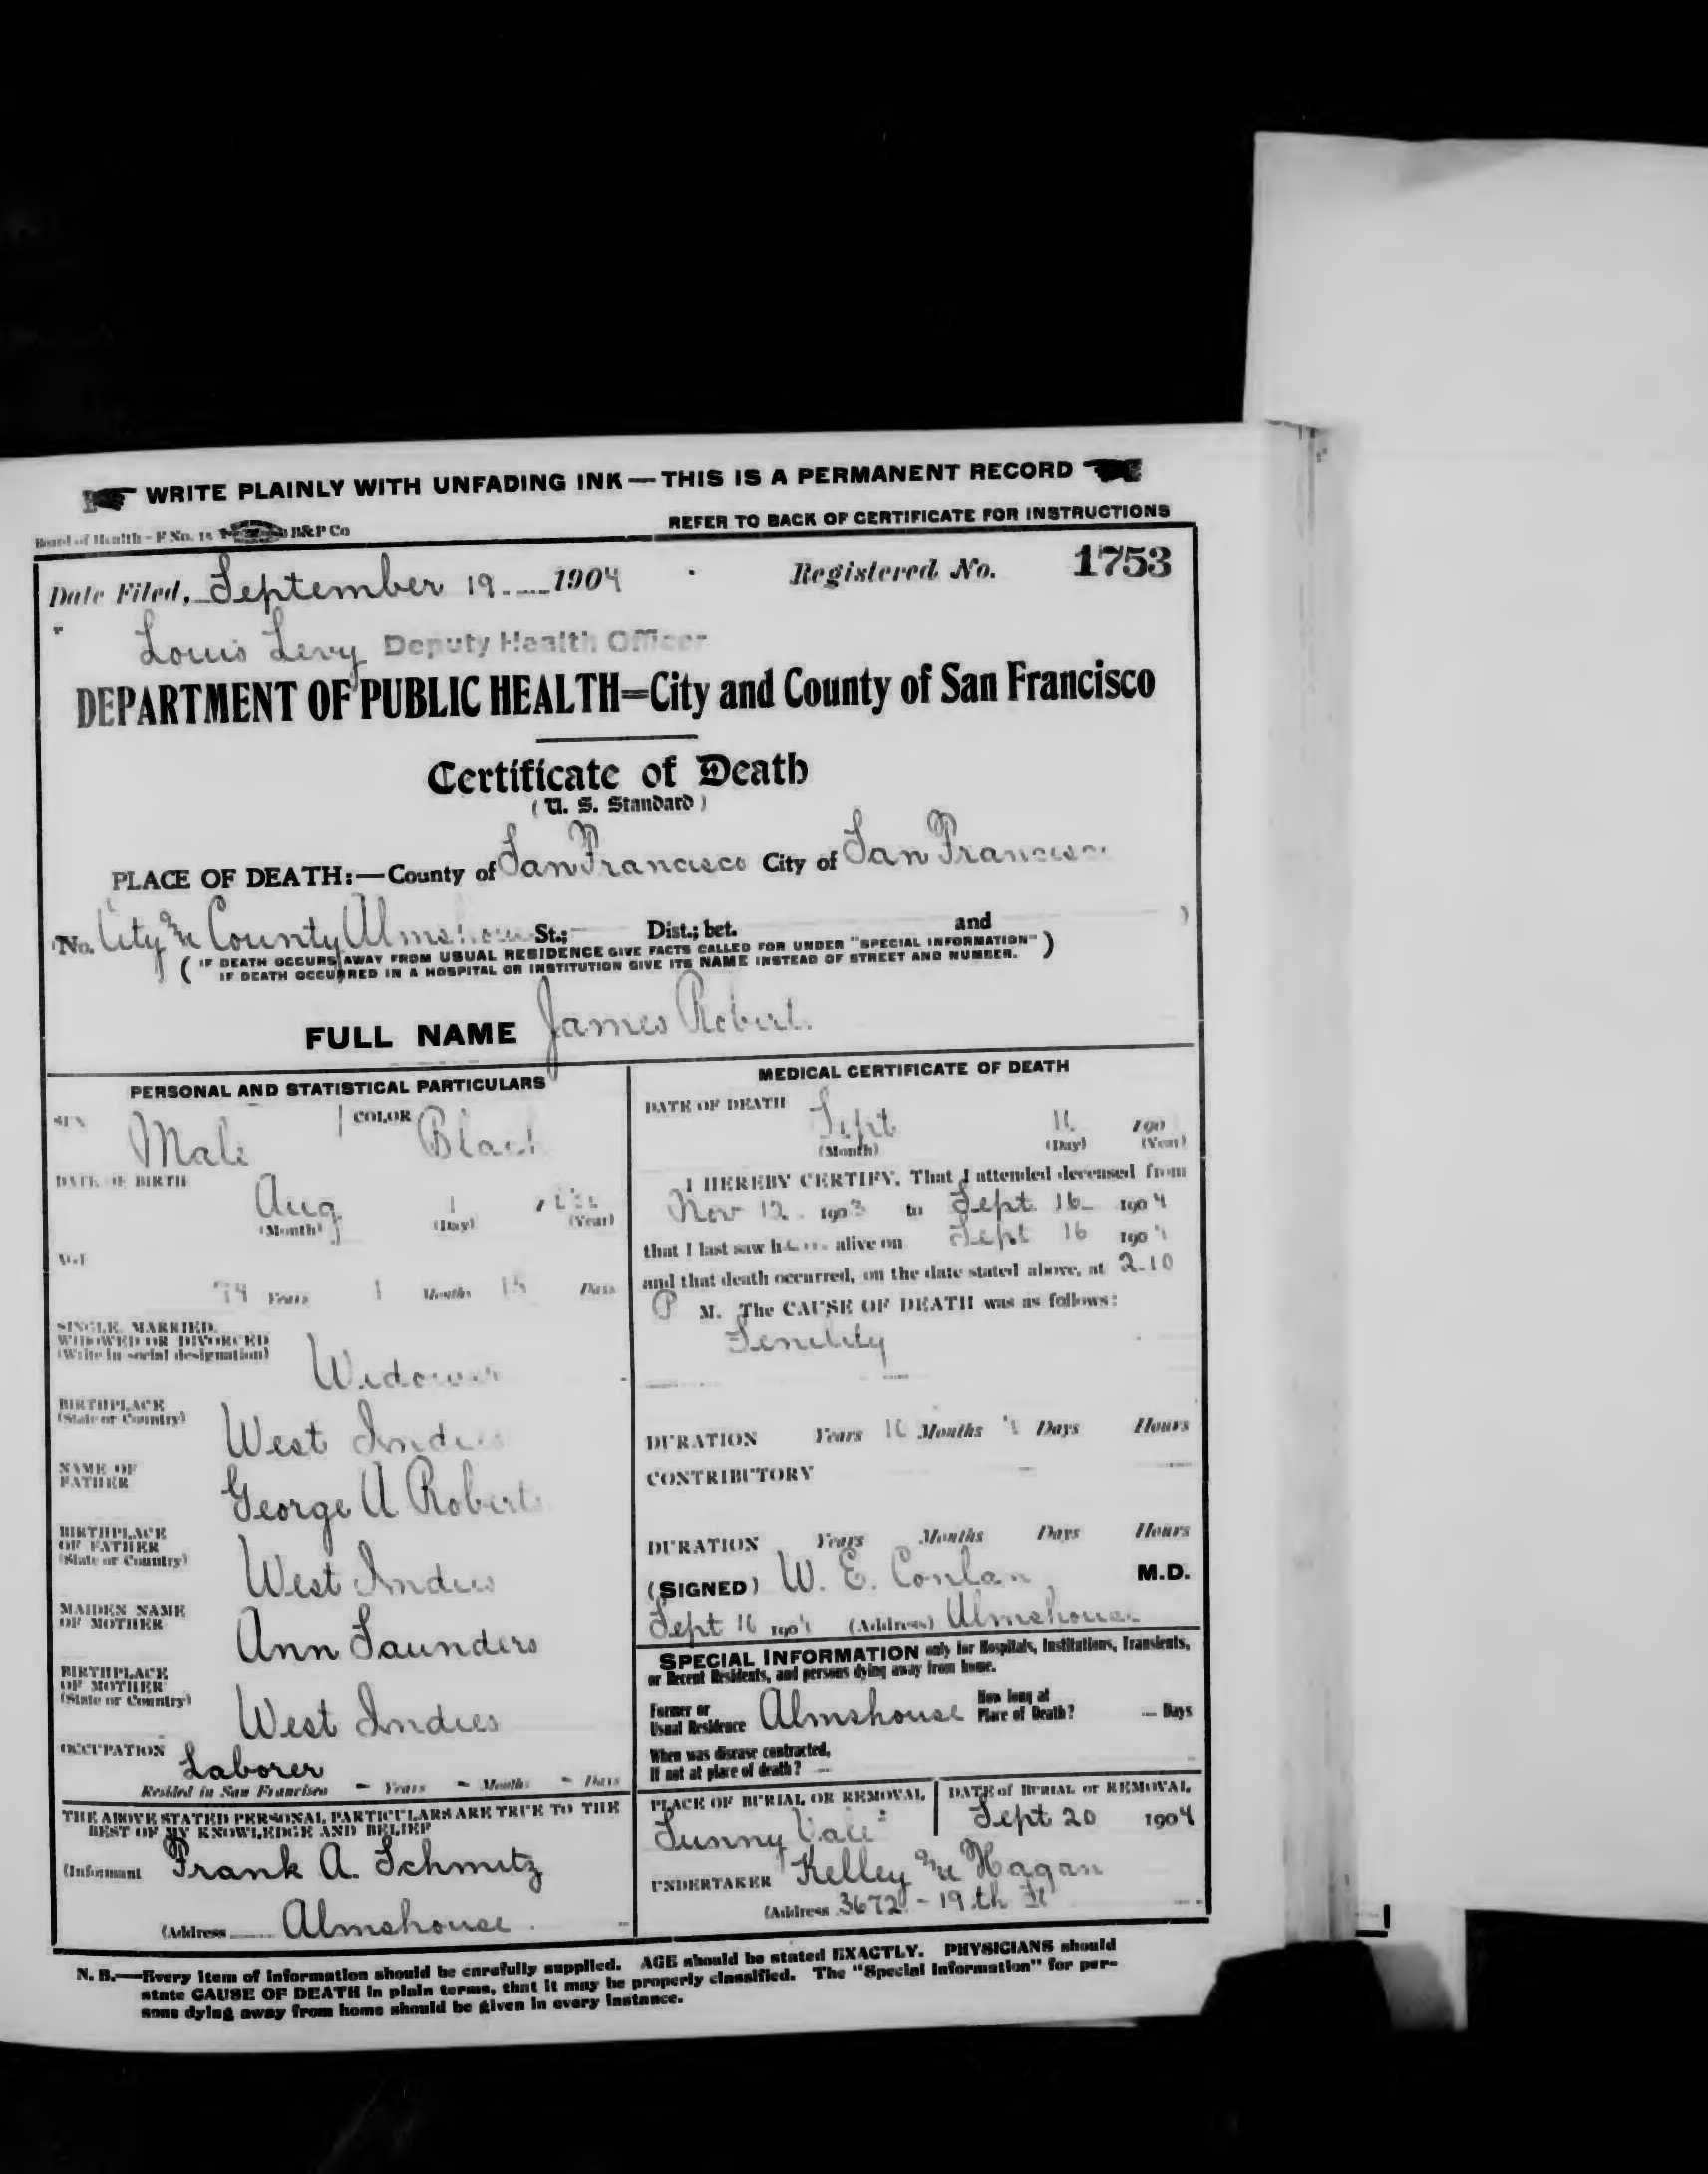 WRITE PLAINLY WITH UNFADING INK — THIS IS A PERMANENT RECORD
Board of Health - F No. 15 B&P Co REFER TO BACK OF CERTIFICATE FOR INSTRUCTIONS
Date Filed, September 19 1904 Registered No. 1753
Louis Levy Deputy Health Officer
DEPARTMENT OF PUBLIC HEALTH=City and County of San Francisco
Certificate of Death
(U. S. Standard)
PLACE OF DEATH:—County of San Francisco City of San Francisco
No. City & County Almshouse St.; Dist.; bet. and )
( IF DEATH OCCURS AWAY FROM USUAL RESIDENCE GIVE FACTS CALLED FOR UNDER "SPECIAL INFORMATION" )
IF DEATH OCCURRED IN A HOSPITAL OR INSTITUTION GIVE ITS NAME INSTEAD OF STREET AND NUMBER.
FULL NAME James Robert.
PERSONAL AND STATISTICAL PARTICULARS
SEX Male COLOR Black
DATE OF BIRTH
Aug 1
(Month) (Day) (Year)
AGE
Years 1 Months 15 Days
SINGLE, MARRIED,
WIDOWED OR DIVORCED
(Write in social designation) Widower
BIRTHPLACE
(State or Country) West Indies
NAME OF
FATHER George A Roberts
BIRTHPLACE
OF FATHER
(State or Country) West Indies
MAIDEN NAME
OF MOTHER Ann Saunders
BIRTHPLACE
OF MOTHER
(State or Country) West Indies
OCCUPATION Laborer
Resided in San Francisco - Years - Months - Days
THE ABOVE STATED PERSONAL PARTICULARS ARE TRUE TO THE
BEST OF MY KNOWLEDGE AND BELIEF
(Informant Frank A. Schmitz
(Address Almshouse.
MEDICAL CERTIFICATE OF DEATH
DATE OF DEATH
Sept 16 190
(Month) (Day) (Year)
I HEREBY CERTIFY, That I attended deceased from
Nov 12 1903 to Sept. 16 1904
that I last saw him alive on Sept 16 1904
and that death occurred, on the date stated above, at 2.10
P M. The CAUSE OF DEATH was as follows:
Senility
DURATION Years 10 Months 4 Days Hours
CONTRIBUTORY
DURATION Years Months Days Hours
(SIGNED) W. E. Conlan, M.D.
Sept 16 1904 (Address) Almshouse
SPECIAL INFORMATION only for Hospitals, Institutions, Transients,
or Recent Residents, and persons dying away from home.
Former or
Usual Residence Almshouse How long at
Place of Death? — Days
When was disease contracted,
If not at place of death? —
PLACE OF BURIAL OR REMOVAL DATE of BURIAL or REMOVAL
Sunny Vale Sept 20 1904
UNDERTAKER Kelley & Hagan
(Address 3672 - 19th St
N. B.—Every item of information should be carefully supplied. AGE should be stated EXACTLY. PHYSICIANS should
state CAUSE OF DEATH in plain terms, that it may be properly classified. The "Special Information" for per-
sons dying away from home should be given in every instance.